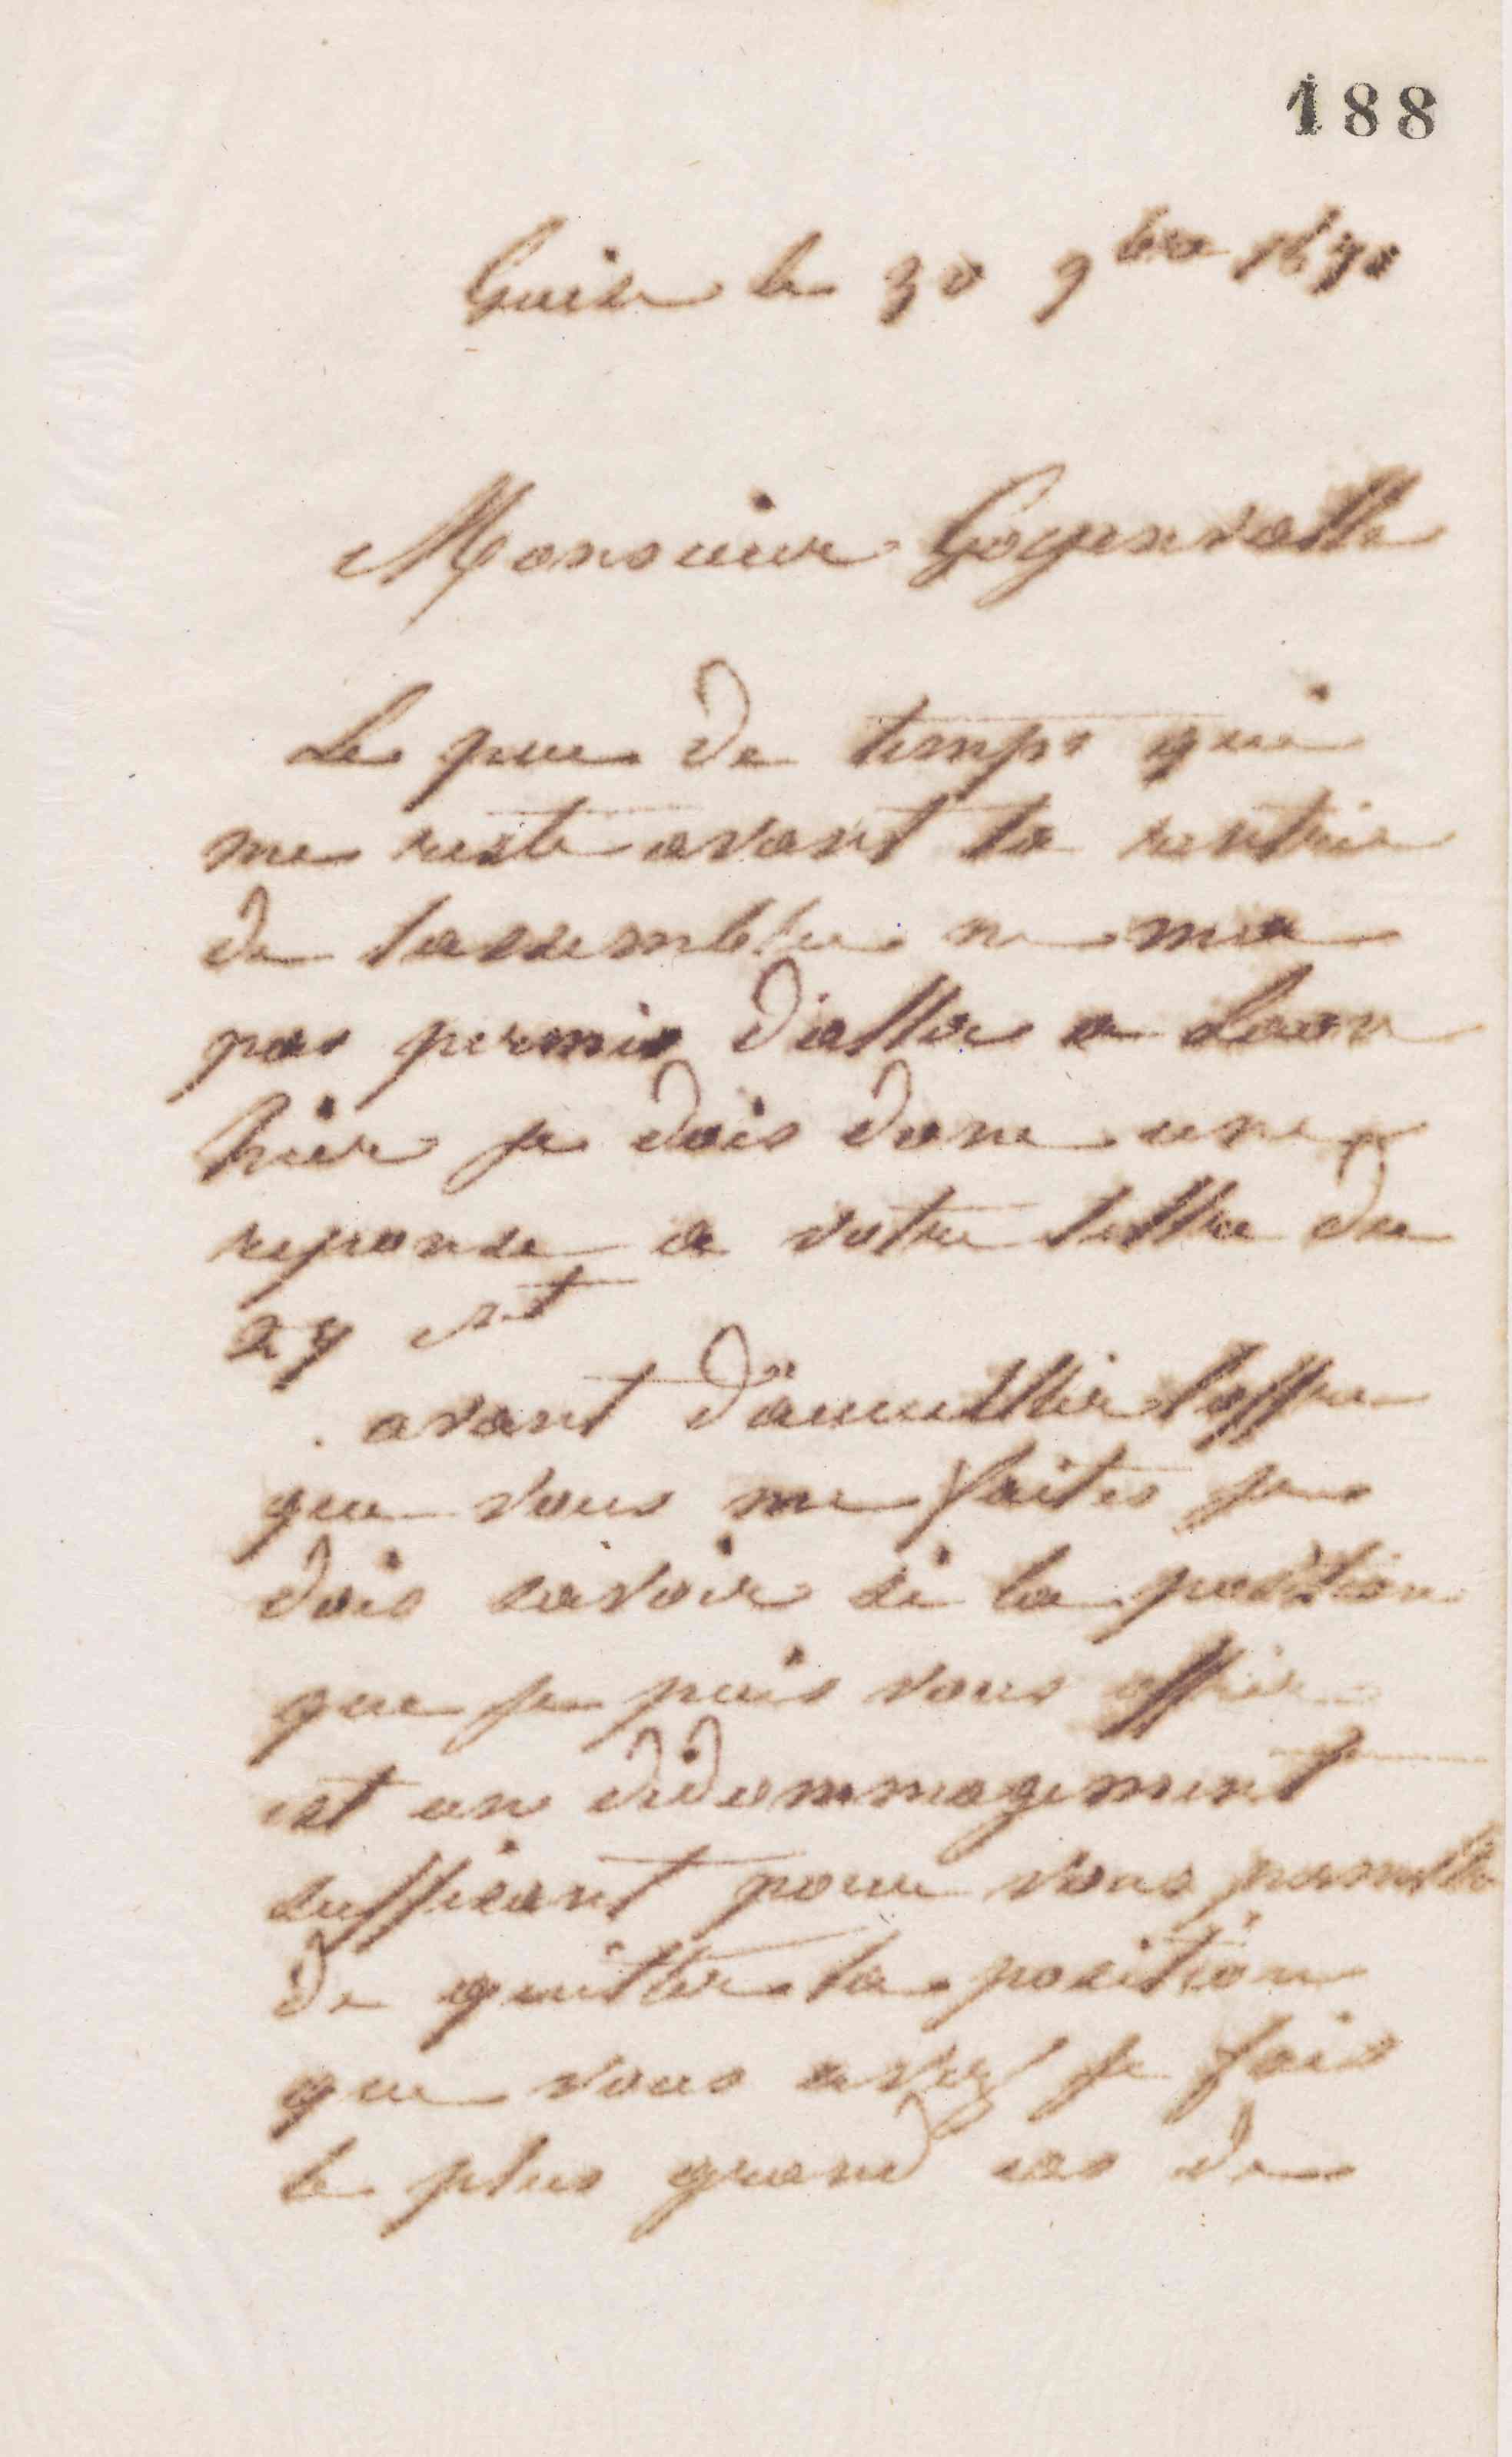 188
Guise le 30 9bre 1871
Monsieur
Le peu de temps qui
me reste avant la rentrée
de lassemblée ne ma
pas permis d'aller a Laon
hier je dois donc une
reponse a votre lettre du
27 ct
avant d'accueillir loffre
que vous me faites je
dois savoir si la position
que je puis vous offrir
est un dédommagement
suffisant pour vous permettre
de quitter la position
que vous avez je fais
le plus grand cas de